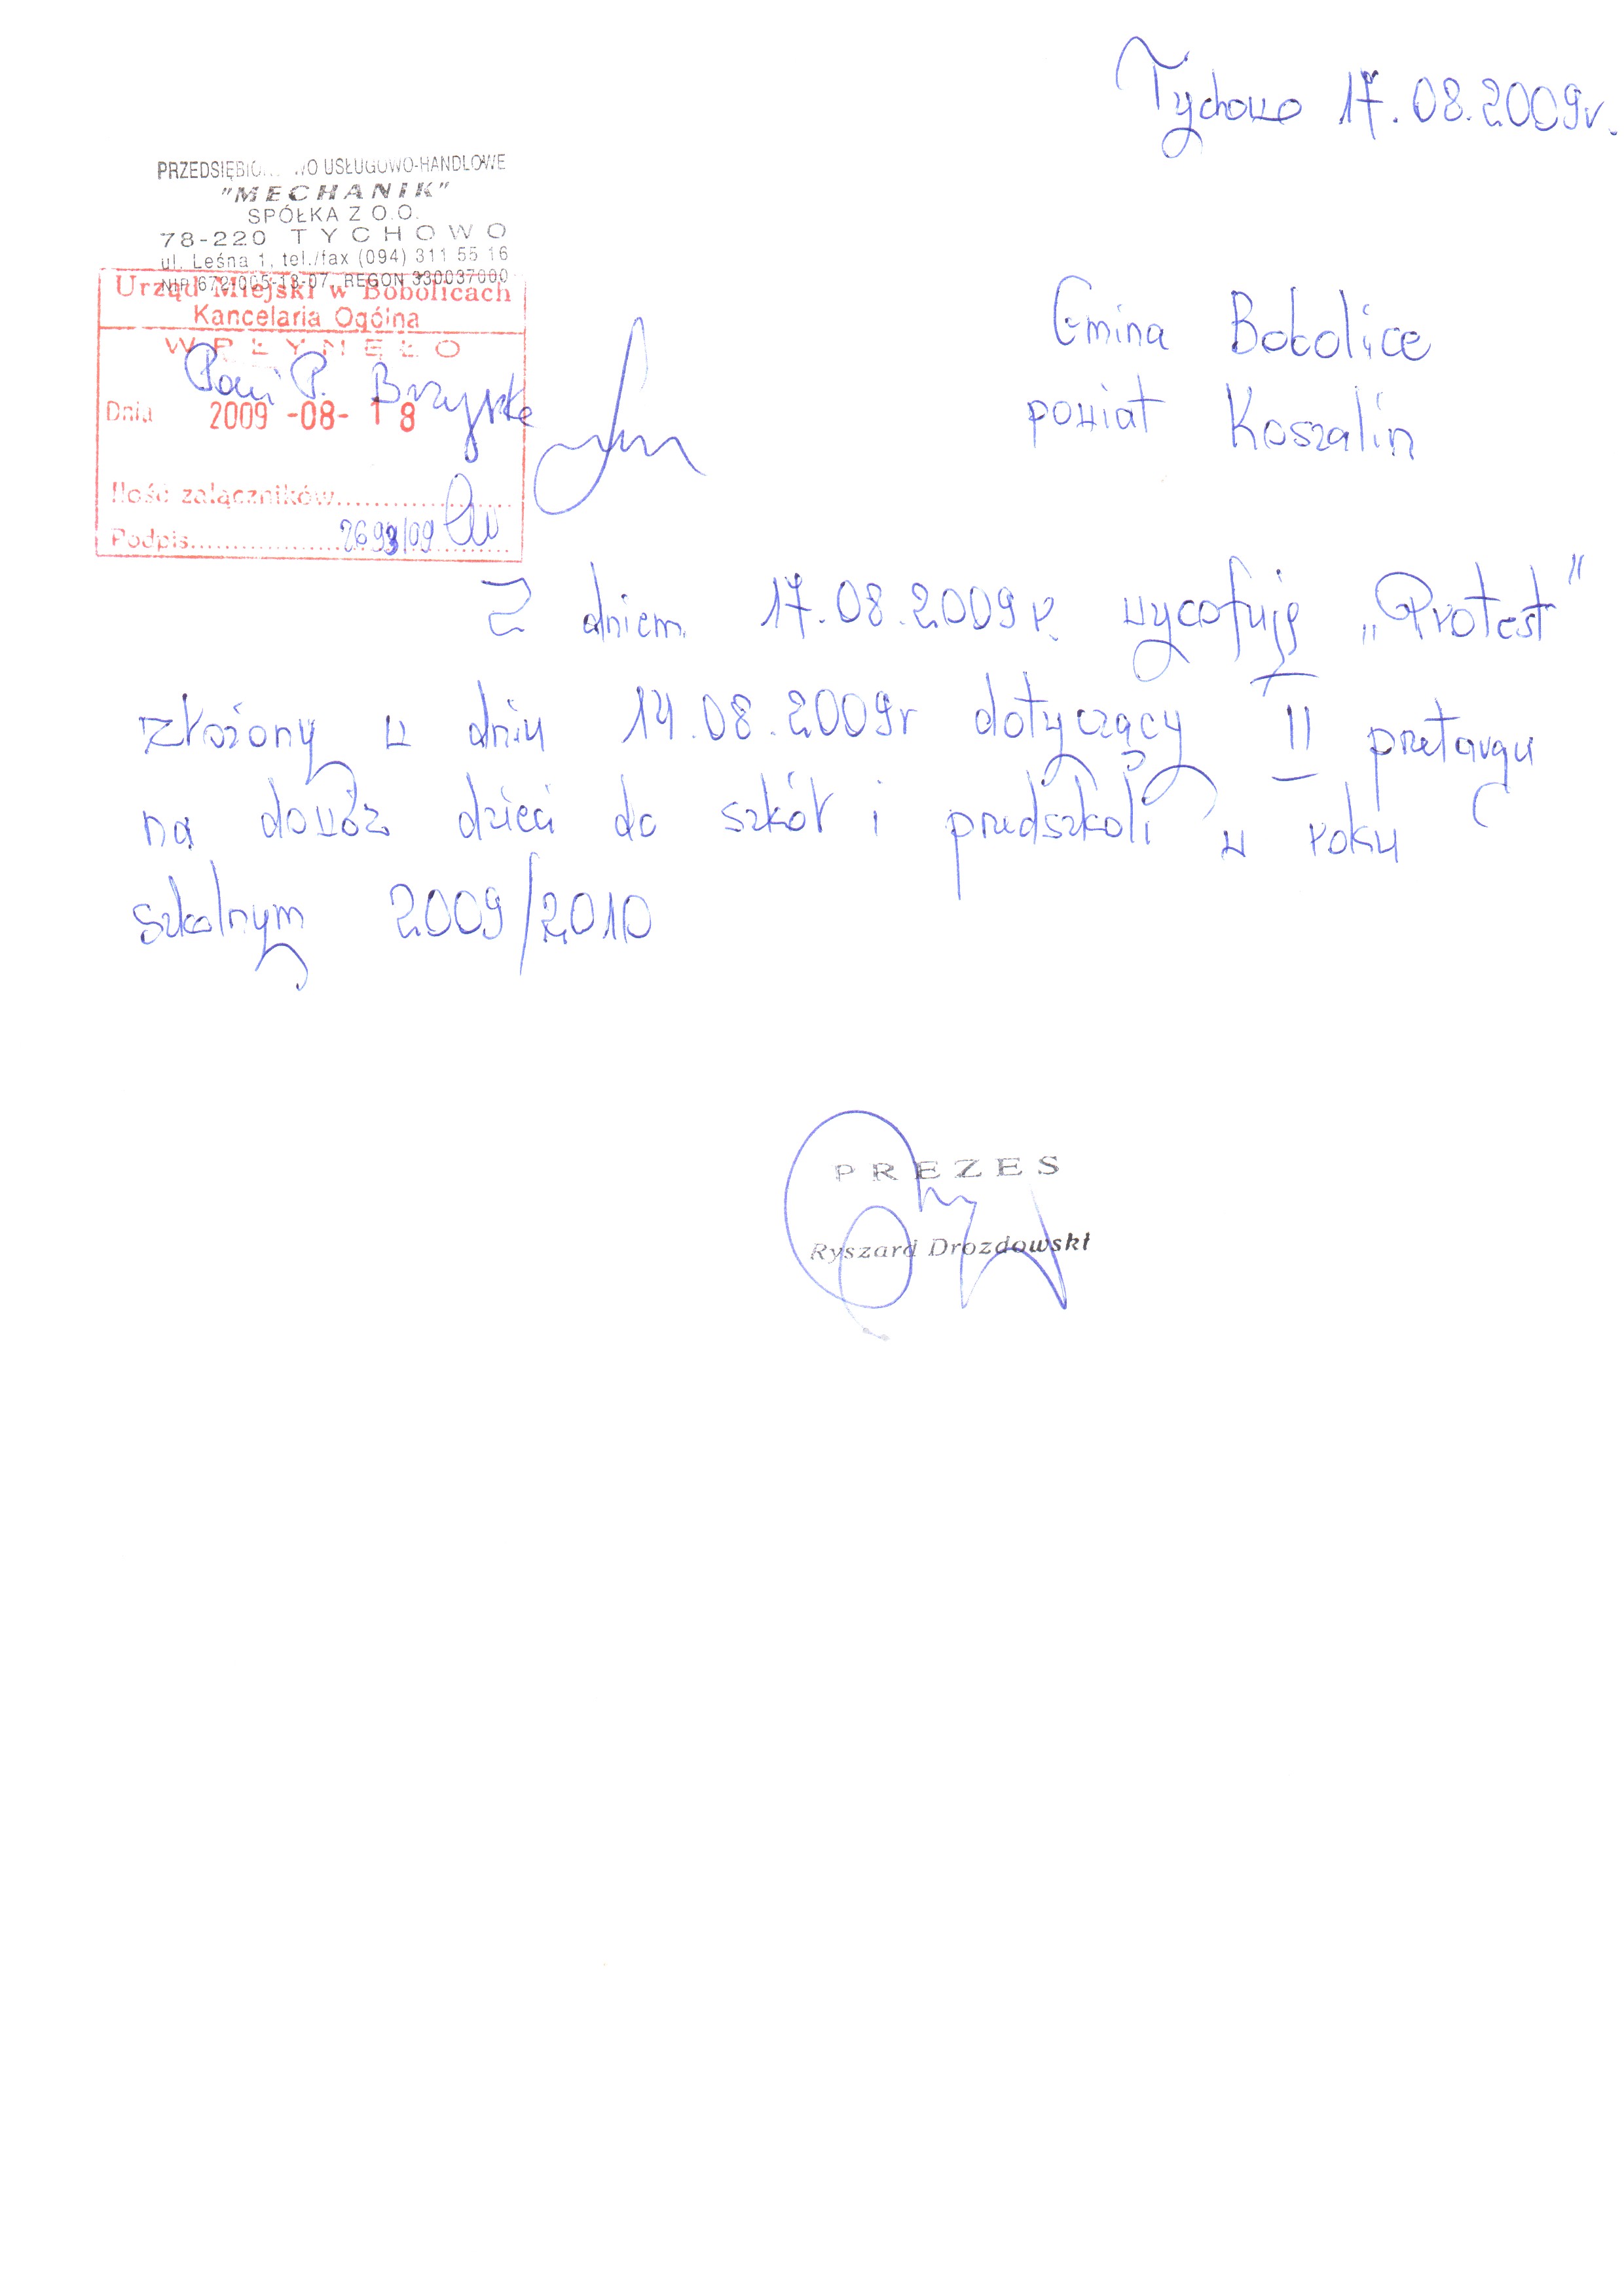 Tychowo 17.08.2009r.
PRZEDSIĘBIO WO USŁUGOWO-HANDLOWE
"MECHANIK"
SPÓŁKA Z O.O.
78-220 TYCHOWO
ul. Leśna 1, tel./fax (094) 311 55 16
NIP 672-005-13-07, REGON 330037000
Urząd Miejski w Bobolicach
Kancelaria Ogólna
WPŁYNĘŁO
Pani P.
Dnia 2009 -08- 18
Ilość załączników
Podpis 2693/09
Gmina Bobolice
powiat Koszalin
Z dniem 17.08.2009r. wycofuję „Protest"
złożony w dniu 14.08.2009r dotyczący II przetargu
na dowóz dzieci do szkół i przedszkoli w roku
szkolnym 2009/2010
PREZES
Ryszard Drozdowski